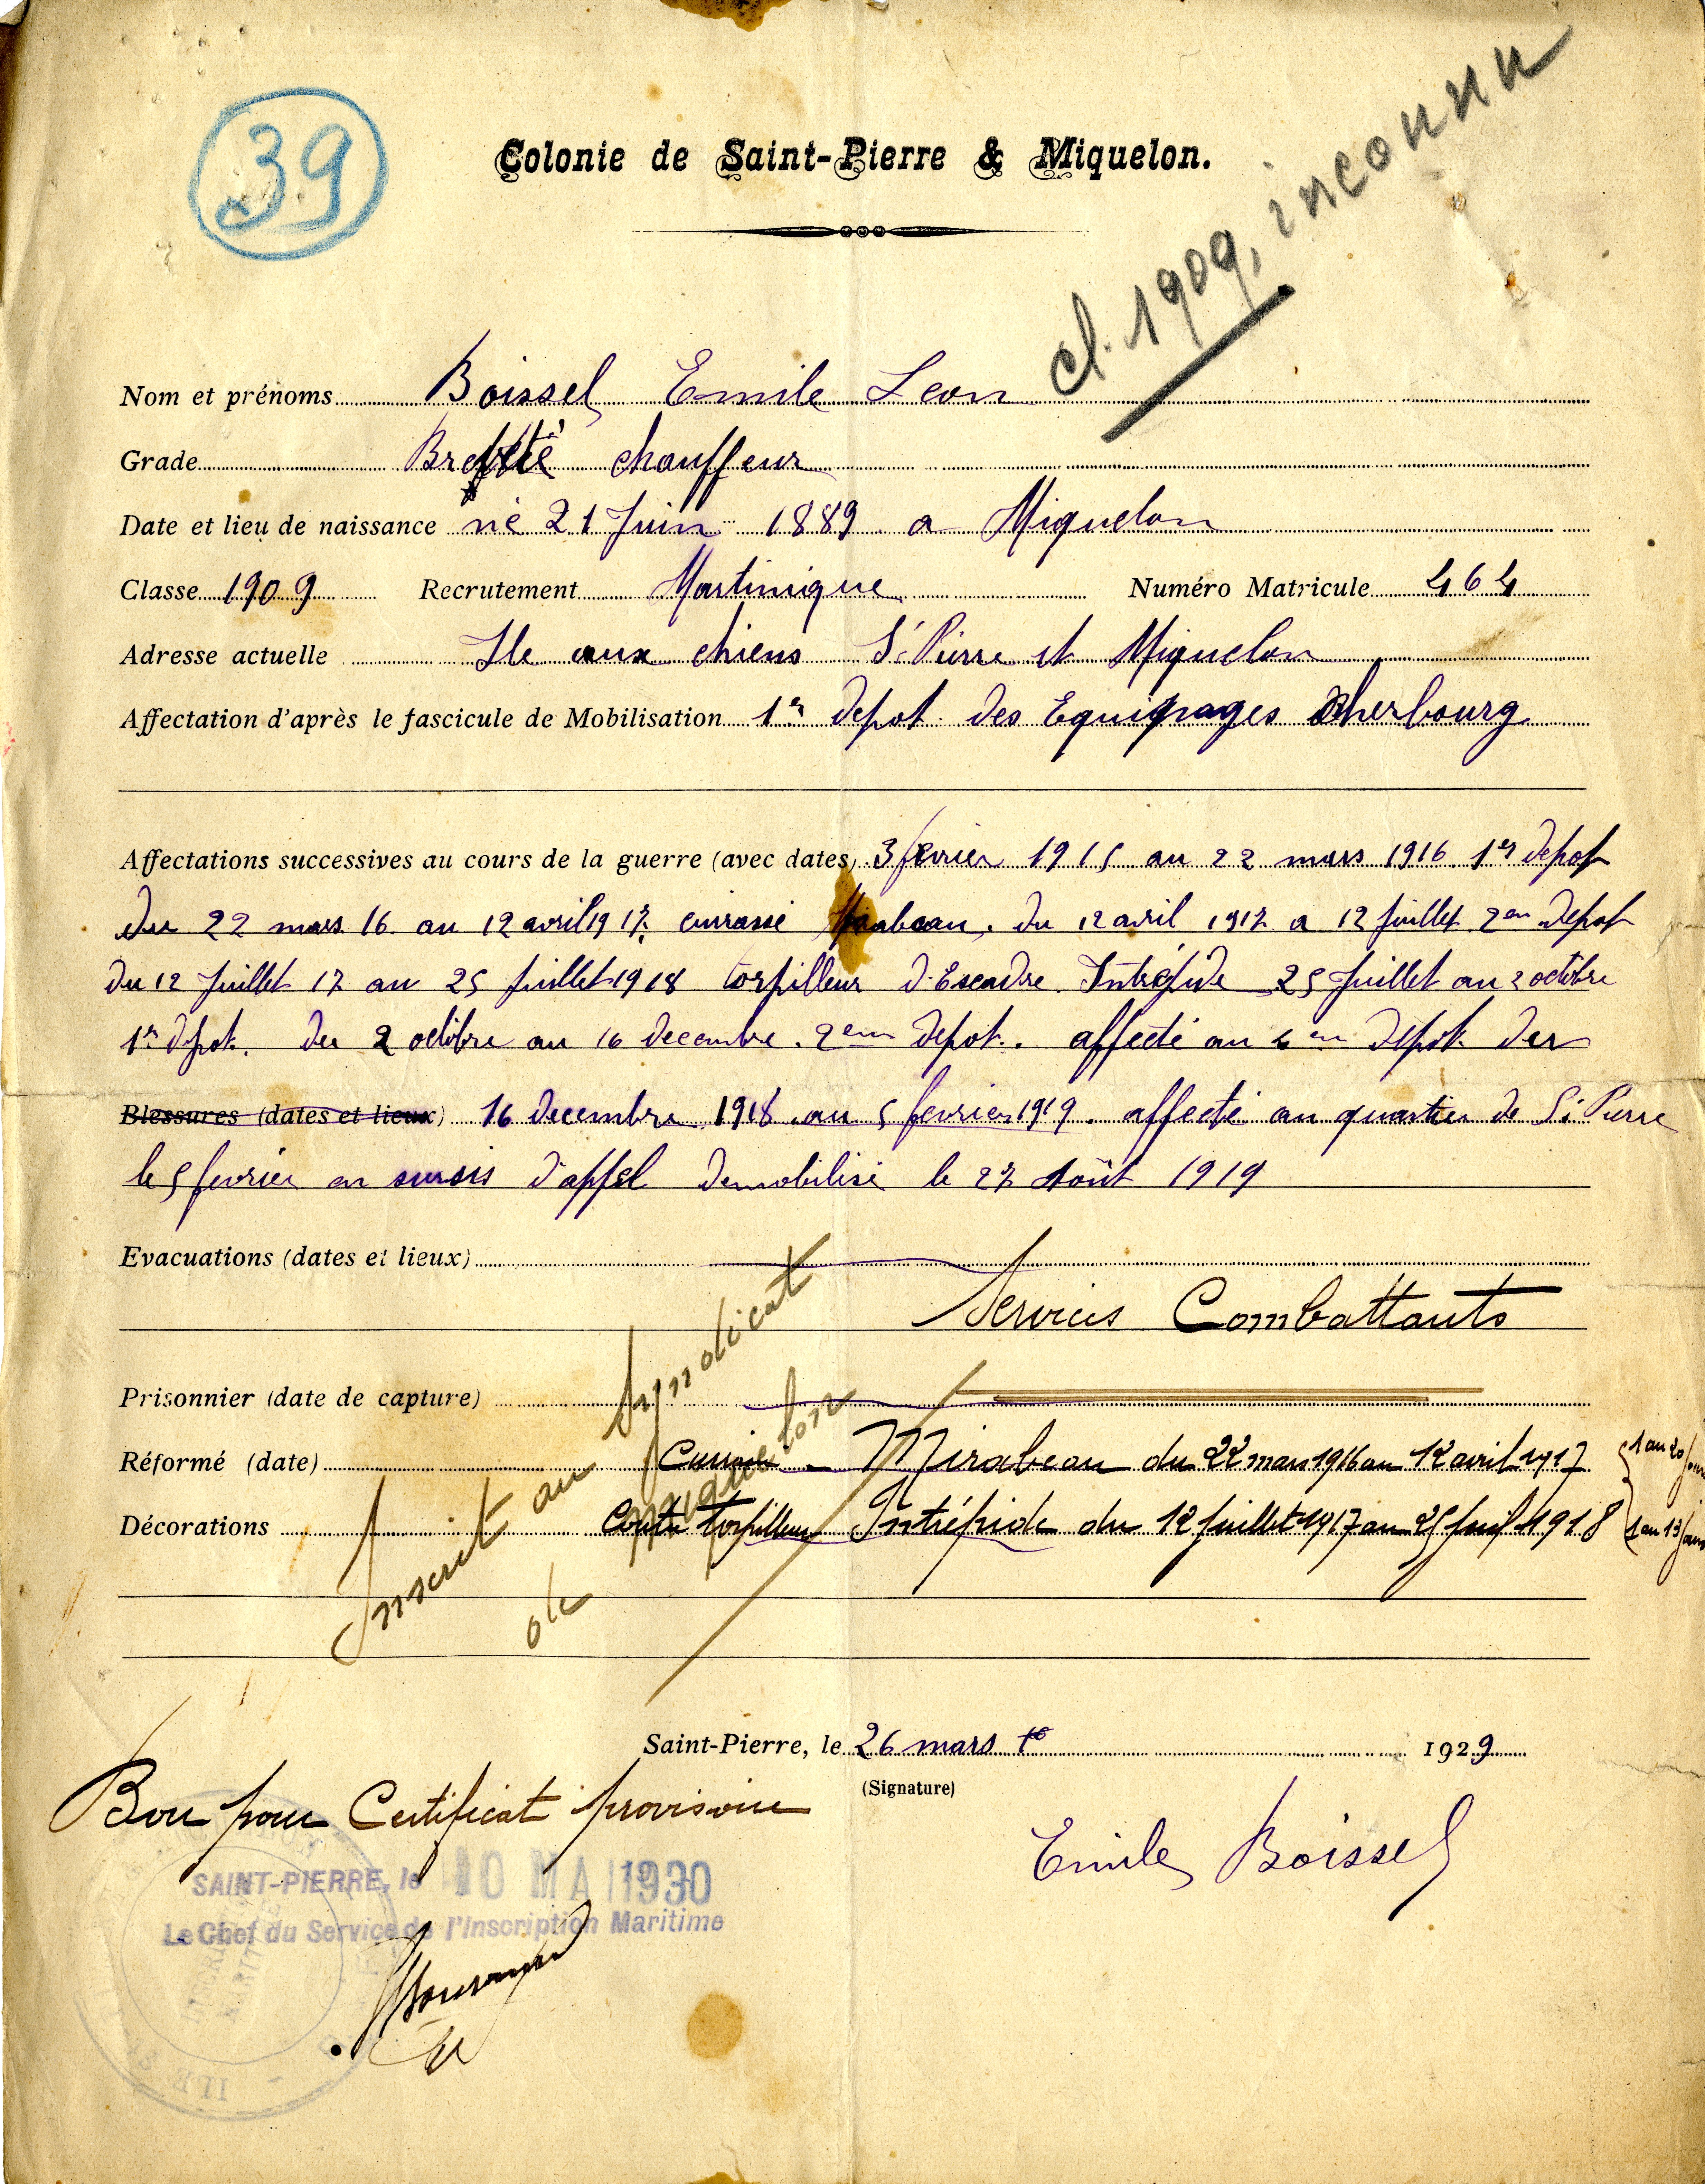 39
Colonie de Saint-Pierre & Miquelon.
cl. 1909, inconnu
Nom et prénoms Boissel Emile Leon
Grade Breveté chauffeur
Date et lieu de naissance né 21 Juin 1889 a Miquelon
Classe 1909 Recrutement Martinique Numéro Matricule 464
Adresse actuelle Ile aux chiens St Pierre et Miquelon
Affectation d'après le fascicule de Mobilisation 1er depot des Equipages Cherbourg
Affectations successives au cours de la guerre (avec dates) 3 fevrier 1915 au 22 mars 1916 1er depot
du 22 mars 16 au 12 avril 1917 cuirassé Mirabeau. du 12 avril 1917 a 12 Juillet 2em Depot
Du 12 Juillet 17 au 25 Juillet 1918 torpilleur d'Escadre Intrépide 25 Juillet au 2 octobre
1er depot. du 2 octobre au 16 decembre. 2em depot. affecté au em depot der
Blessures (dates et lieux) 16 decembre 1918 au 5 fevrier 1919. affecté au quartier de St Pierre
le 5 fevrier en sursis d'appel demobilisé le 27 Août 1919
Evacuations (dates et lieux)
Services Combattants
Prisonnier (date de capture)
Réformé (date) Cuirassé - Mirabeau du 22 mars 1916 au 12 avril 1917 1 an 20 jours
Décorations Contre torpilleur Intrépide du 12 juillet 1917 au 25 juil 1918 1 an 13 jours
Inscrit au Syndicat
de Miquelon
Saint-Pierre, le 26 mars 1929
(Signature)
Bon pour Certificat provisoire
Emile Boissel
SAINT-PIERRE, le 10 MAI 1930
Le Chef du Service de l'Inscription Maritime